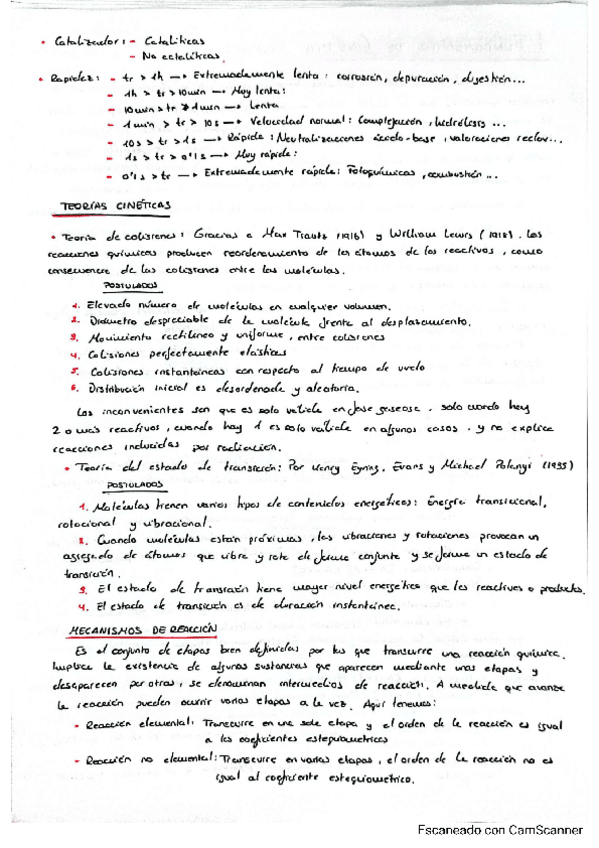 • Catalizador: - Catalíticas
- No catalíticas.
• Rapidez: - tr > 1h → Extremadamente lenta: corrosión, depuración, digestión...
- 1h > tr > 10min → Muy lenta:
- 10min > tr > 1min → Lenta
- 1min > tr > 10s → Velocidad normal: Complejación, hidrólisis...
- 10s > tr > 1s → Rápida: Neutralizaciones ácido-base, valoraciones redox...
- 1s > tr > 0'1s → Muy rápida:
- 0'1s > tr → Extremadamente rápida: Fotoquímicas, combustión...
TEORÍAS CINÉTICAS
• Teoría de colisiones: Gracias a Max Trautz (1916) y William Lewis (1918). Las
reacciones químicas producen reordenamiento de los átomos de los reactivos, como
consecuencia de las colisiones entre las moléculas.
POSTULADOS
1. Elevado número de moléculas en cualquier volumen.
2. Diámetro despreciable de la molécula frente al desplazamiento.
3. Movimiento rectilíneo y uniforme, entre colisiones
4. Colisiones perfectamente elásticas
5. Colisiones instantáneas con respecto al tiempo de vuelo
6. Distribución inicial es desordenada y aleatoria.
Los inconvenientes son que es solo válida en fase gaseosa, solo cuando hay
2 o más reactivos, cuando hay 1 es solo válida en algunos casos, y no explica
reacciones inducidas por radiación.
• Teoría del estado de transición: Por Henry Eyring, Evans y Michael Polanyi (1935)
POSTULADOS
1. Moléculas tienen varios tipos de contenidos energéticos: Energía translacional,
rotacional y vibracional.
2. Cuando moléculas están próximas, las vibraciones y rotaciones provocan un
agregado de átomos que vibra y rota de forma conjunta y se forma un estado de
transición.
3. El estado de transición tiene mayor nivel energético que los reactivos o productos.
4. El estado de transición es de duración instantánea.
MECANISMOS DE REACCIÓN
Es el conjunto de etapas bien definidas por las que transcurre una reacción química.
Implica la existencia de algunas sustancias que aparecen mediante unas etapas y
desaparecen por otras, se denominan intermedios de reacción. A medida que avanza
la reacción pueden ocurrir varias etapas a la vez. Aquí tenemos:
- Reacción elemental: Transcurre en una sola etapa y el orden de la reacción es igual
a los coeficientes estequiométricos
- Reacción no elemental: Transcurre en varias etapas, el orden de la reacción no es
igual al coeficiente estequiométrico.
Escaneado con CamScanner